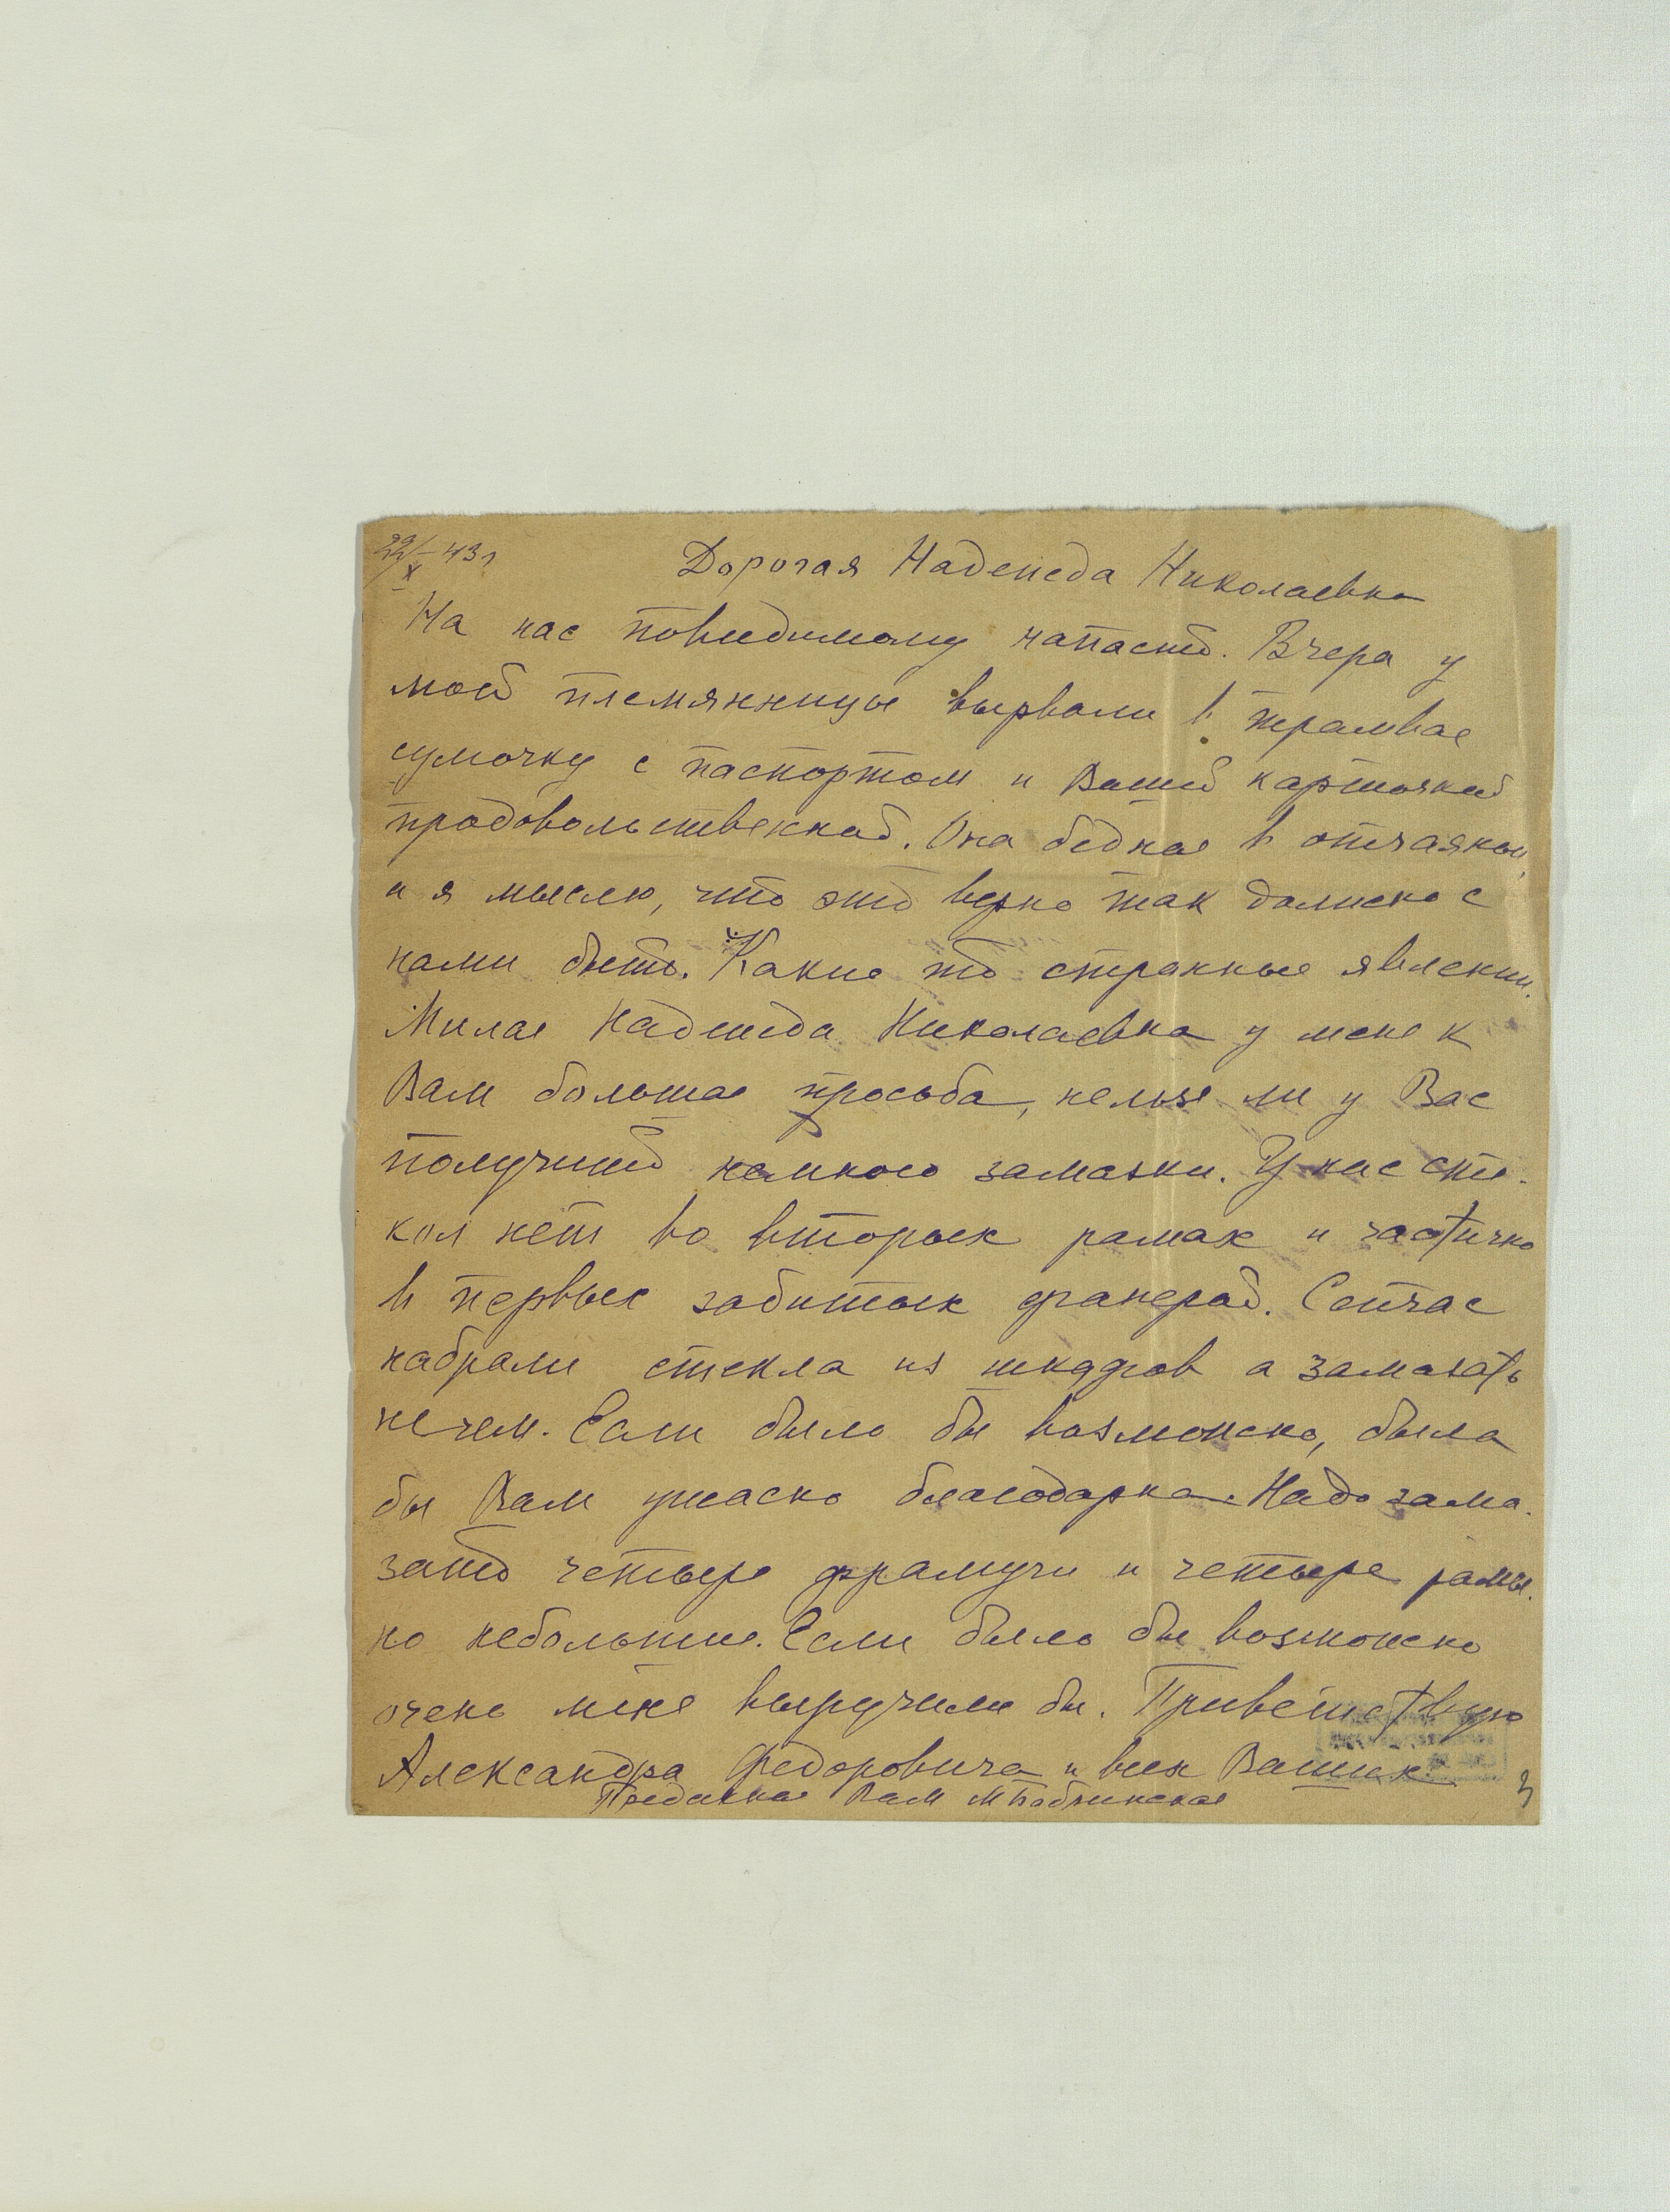 22/X-43 г
Дорогая Надежда Николаевна
На нас повидимому напасть. Вчера у
моей племянницы вырвали в трамвае
сумочку с паспортом и Вашей карточкой
продовольственной. Она бедная в отчаянии,
и я мыслю, что это верно так должно с
нами быть. Какие то странные явлении.
Милая Надежда Николаевна у меня к
Вам большая просьба, нельзя ли у Вас
получить немного замазки. У нас сте-
кол нет во вторых рамах и частично
в первых забитых фанерой. Сейчас
набрали стекла из шкафов а замазать
нечем. Если было бы возможно, была
бы Вам ужасно благодарна. Надо зама-
зать четыре фрамуги и четыре рамы.
но небольшие. Если было бы возможно
очень меня выручили бы. Приветствую
Александра Федоровича и всех Ваших.
Преданная Вам
3